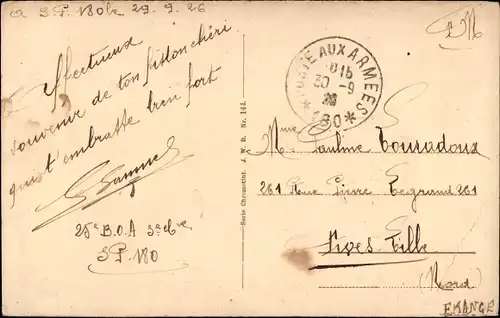 S.P. 180 le 29.9.26
F.M
Affectueux
souvenir de ton fiston chéri
qui t'embrasse bien fort
25e B.O.A
S.P. 180
POSTE AUX ARMEES
30 -9
26
*180*
Serie Chromotint J. W. B. Nr. 144.
Mme Pauline
261 Rue Pierre Legrand 261
Fives Lille
(Nord)